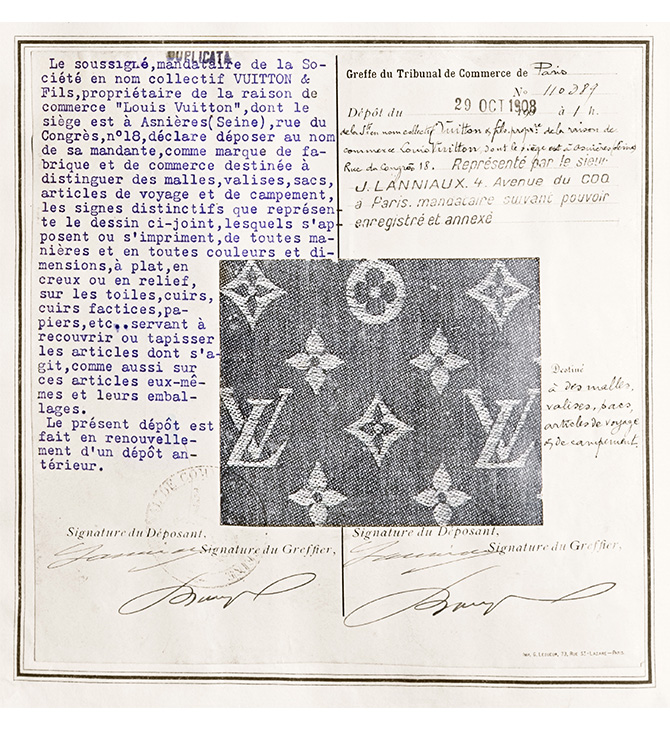 DUPLICATA
Le soussigné,mandataire de la So-
ciété en nom collectif VUITTON &
Fils,propriétaire de la raison de
commerce "Louis Vuitton",dont le
siège est à Asnières(Seine),rue du
Congrès,n°18,déclare déposer au nom
de sa mandante,comme marque de fa-
brique et de commerce destinée à
distinguer des malles,valises,sacs,
articles de voyage et de campement,
les signes distinctifs que représen-
te le dessin ci-joint,lesquels s'ap-
posent ou s'impriment,de toutes ma-
nières et en toutes couleurs et di-
mensions,à plat,en
creux ou en relief,
sur les toiles,cuirs,
cuirs factices,pa-
piers,etc..servant à
recouvrir ou tapisser
les articles dont s'a-
git,comme aussi sur
ces articles eux-mê-
mes et leurs embal-
lages.
Le présent dépôt est
fait en renouvelle-
ment d'un dépôt an-
térieur.
Signature du Déposant,
Signature du Greffier,
Greffe du Tribunal de Commerce de Paris
N° 110.087
Dépôt du 29 OCT 1908 à 1 h.
de la Sté en nom collectif Vuitton & fils, propre. de la raison de
commerce Louis Vuitton, dont le siège est à Asnières (Seine)
Rue du Congrès 18. Représenté par le sieur
J. LANNIAUX. 4. Avenue du COQ
à Paris. mandataire suivant pouvoir
enregistré et annexé
LV
LV
Destiné
à des malles,
valises, sacs,
articles de voyage
& de campement.
Signature du Déposant,
Signature du Greffier,
IMP. G. LESUEUR, 73, RUE ST-LAZARE—PARIS